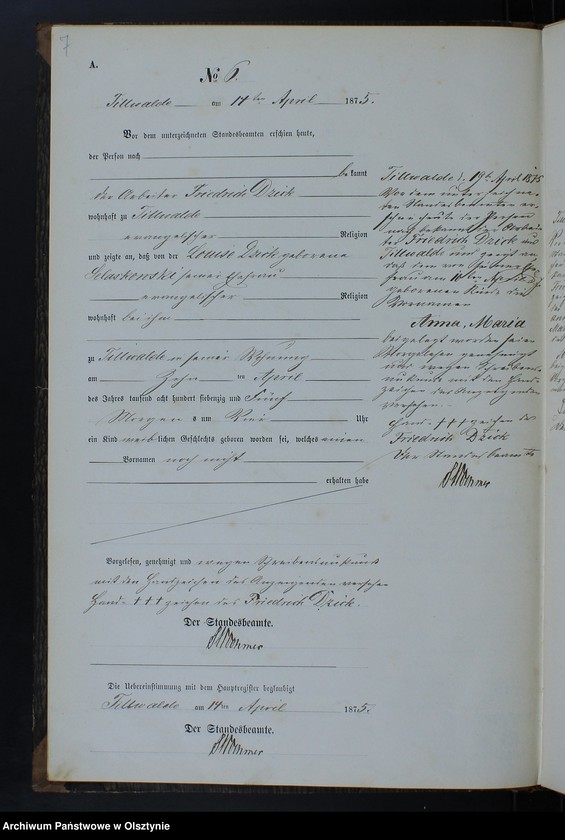 7
A.
№ 6.
Tillwalde am 14ten April 1875.
Vor dem unterzeichneten Standesbeamten erschien heute,
der Person nach
bekannt
der Arbeiter Friedrich Dzick
wohnhaft zu Tillwalde
evangelischer Religion
und zeigte an, daß von der Louise Dzick geborene
seiner Ehefrau
evangelischer Religion
wohnhaft bei ihm
zu Tillwalde in seiner Wohnung
am Zehn ten April
des Jahres tausend acht hundert siebenzig und Fünf
Morgens um Uhr
ein Kind weiblichen Geschlechts geboren worden sei, welches einen
Vornamen noch nicht
erhalten habe
Vorgelesen, genehmigt und wegen Schreibensunkunde
mit den Handzeichen des Anzeigenden versehen
Hand +++ zeichen des Friedrich Dzick.
Der Standesbeamte.
Die Uebereinstimmung mit dem Hauptregister beglaubigt
Tillwalde am 14ten April 1875.
Der Standesbeamte.
Tillwalde d. 19ten April 1875
Vor dem unterzeichne-
ten Standesbeamten er-
schien heute der Person
nach bekannt der Arbei-
ter Friedrich Dzick aus
Tillwalde und zeigte an
daß dem von seiner Ehe-
frau am 10ten April
geborenen Kinde die
Vornamen
Anna, Maria
beigelegt worden seien
Vorgelesen genehmigt
und wegen Schreibens-
unkunde mit den Hand-
zeichen des Anzeigenden
versehen.
Hand +++ zeichen des
Friedrich Dzick
Der Standesbeamte
Archiwum Państwowe w Olsztynie